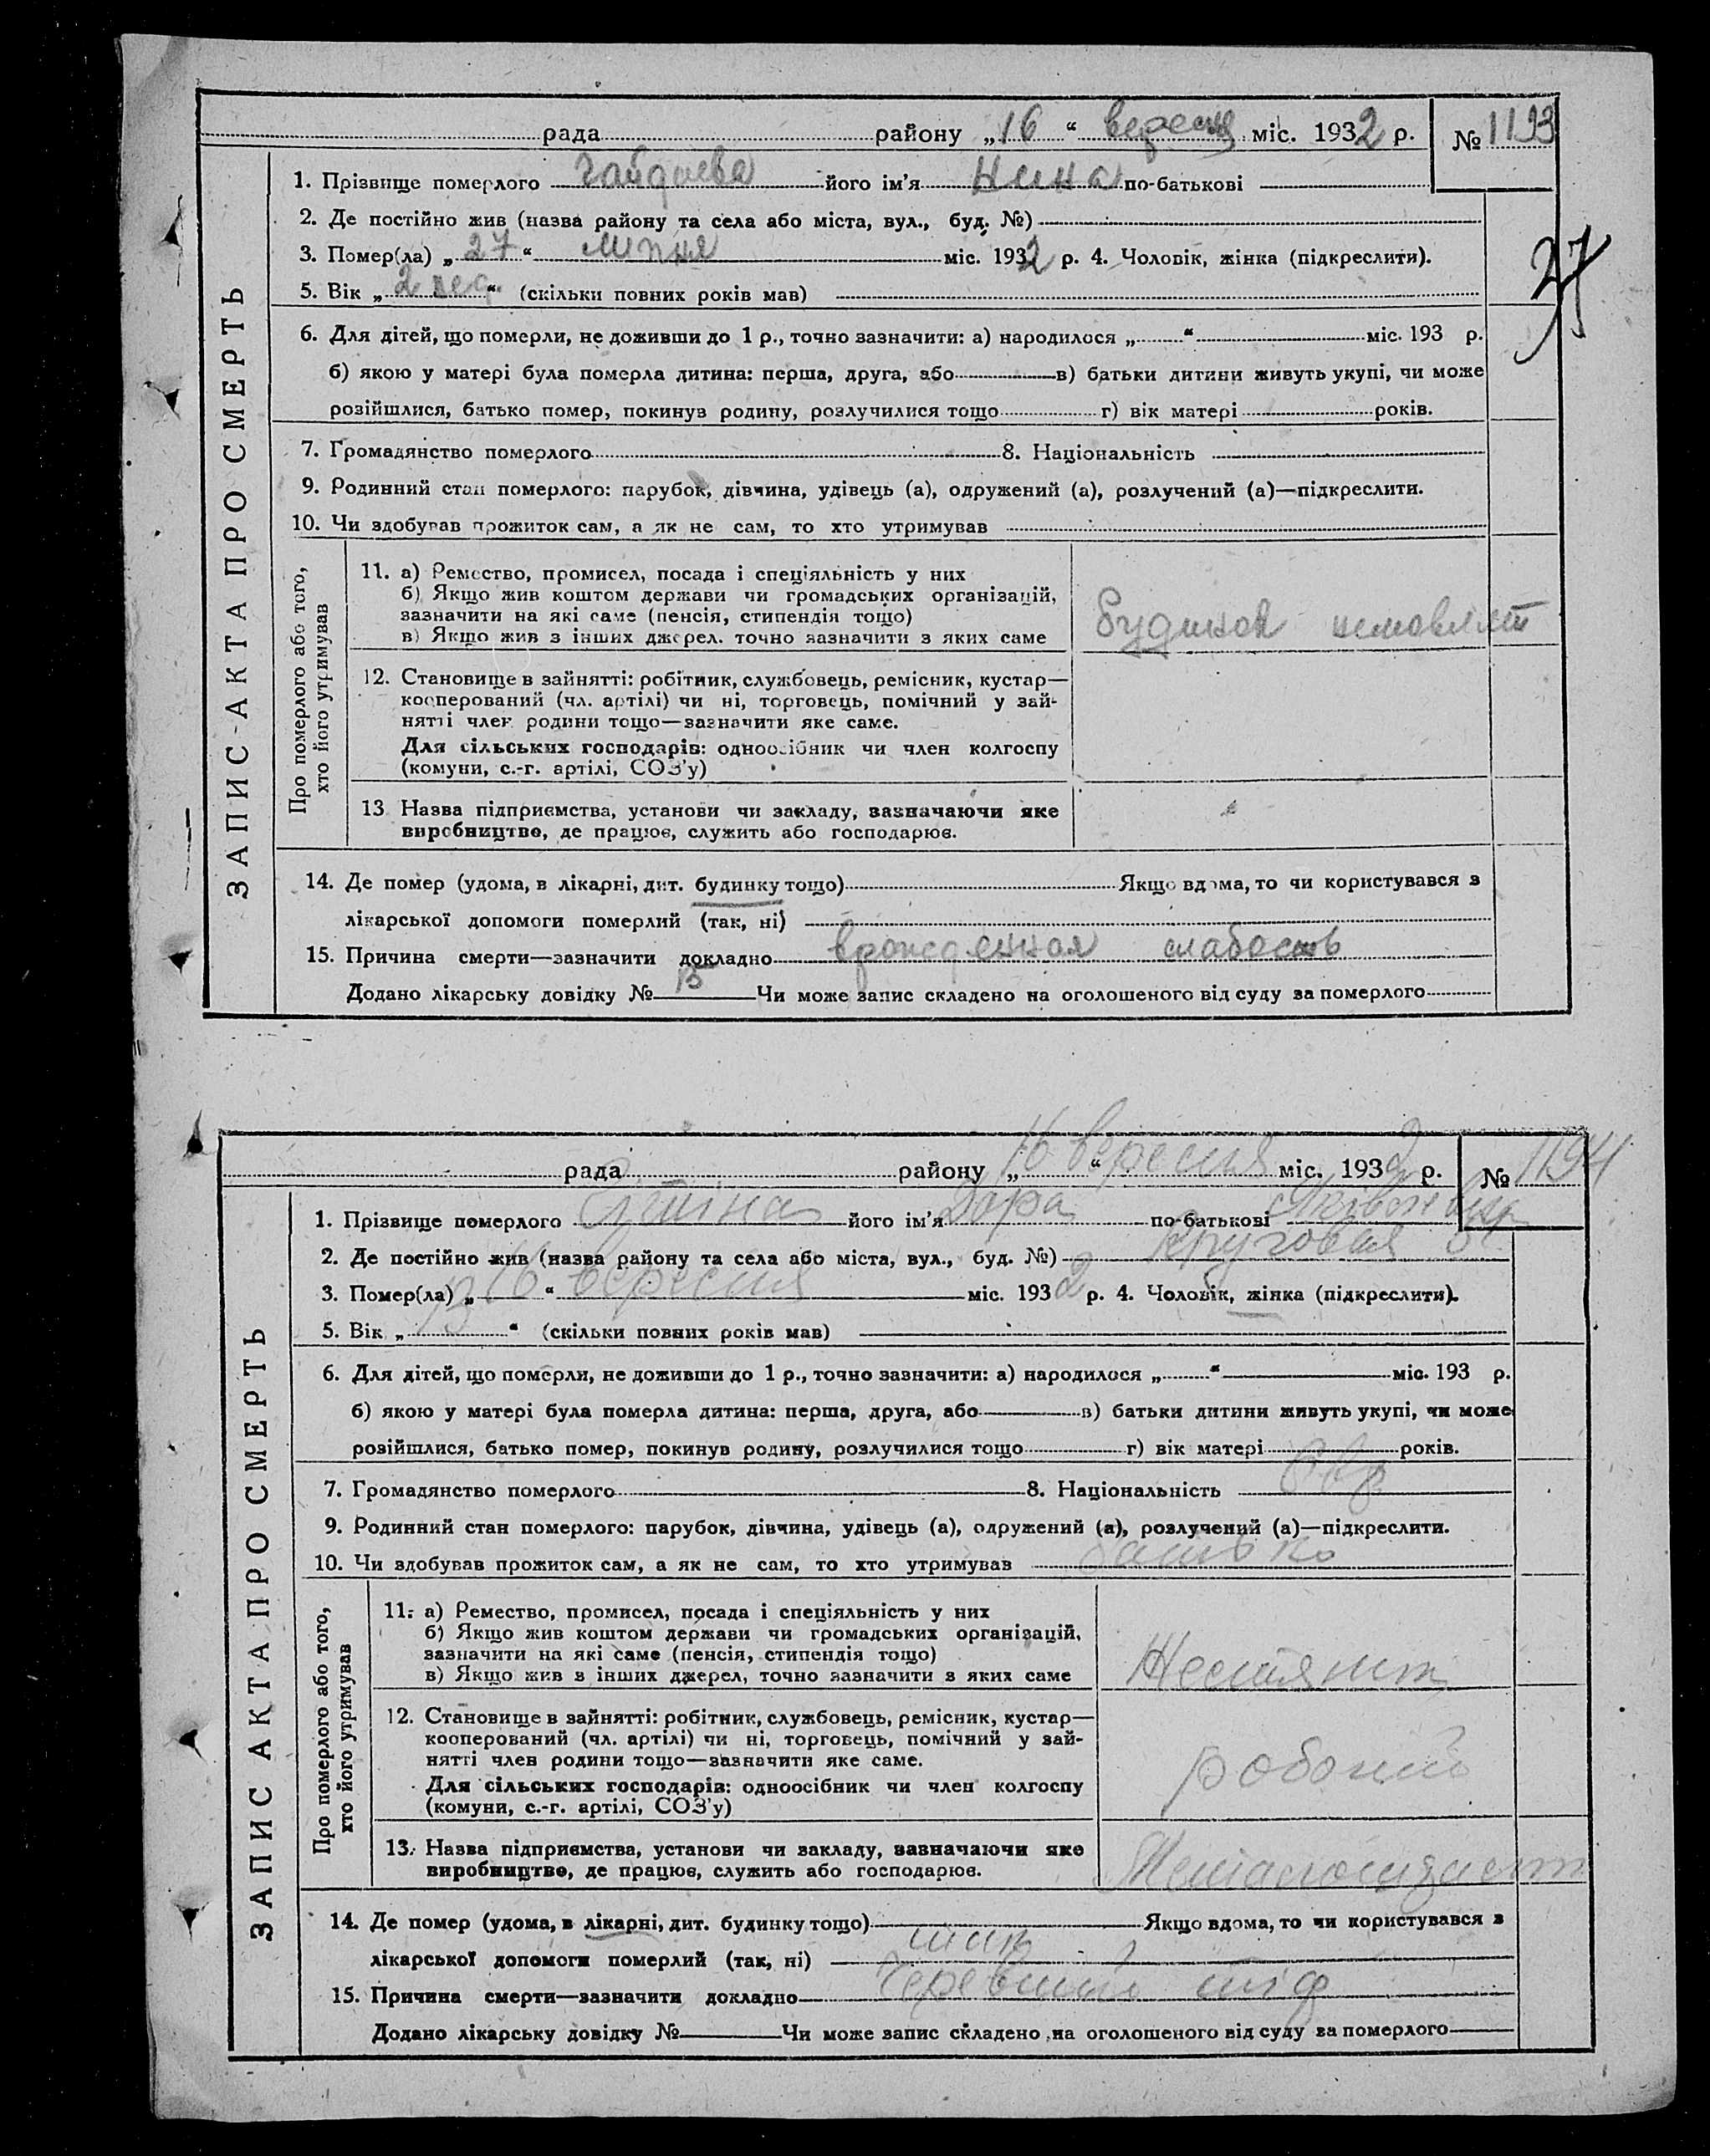 рада района „16“ вересня міс. 1932 р. № 1193
1. Прізвище померлого його ім'я Нина по-батькові
2. Де постійно жив (назва району та села або міста, вул., буд. №)
3. Помер(ла) „27“ липня міс. 1932 р. 4. Чоловік, жінка (підкреслити).
5. Вік „2 нед.“ (скільки повних років мав)
37
6. Для дітей, що померли, не доживши до 1 р., точно зазначити: а) народилося „ “ міс. 193 р.
б) якою у матері була померла дитина: перша, друга, або в) батьки дитини живуть укупі, чи може
розійшлися, батько помер, покинув родину, розлучилися тощо г) вік матері років.
7. Громадянство померлого 8. Національність
9. Родинний стан померлого: парубок, дівчина, удівець (а), одружений (а), розлучений (а)—підкреслити.
10. Чи здобував прожиток сам, а як не сам, то хто утримував
ЗАПИС АКТА ПРО СМЕРТЬ
Про померлого або того,
хто його утримував
11. а) Ремество, промисел, посада і спеціяльність у них
б) Якщо жив коштом держави чи громадських організацій,
зазначити на які саме (пенсія, стипендія тощо)
в) Якщо жив з інших джерел, точно зазначити з яких саме
Будинок немовлят
12. Становище в зайнятті: робітник, службовець, ремісник, кустар—
кооперований (чл. артілі) чи ні, торговець, помічний у зай-
нятті член родини тощо—зазначити яке саме.
Для сільських господарів: одноосібник чи член колгоспу
(комуни, с.-г. артілі, СОЗ'у)
13 Назва підприємства, установи чи закладу, зазначаючи яке
виробництво, де працює, служить або господарює.
14. Де помер (удома, в лікарні, дит. будинку тощо) Якщо вдома, то чи користувався з
лікарської допомоги померлий (так, ні)
15. Причина смерти—зазначити докладно врожденная слабость
Додано лікарську довідку № 15 Чи може запис складено на оголошеного від суду за померлого
рада району „16“ вересня міс. 1932 р. № 1194
1. Прізвище померлого його ім'я Дора по-батькові
2. Де постійно жив (назва району та села або міста, вул., буд. №) Круговая
3. Помер(ла) „16“ вересня міс. 1932 р. 4. Чоловік, жінка (підкреслити).
5. Вік „13“ (скільки повних років мав)
6. Для дітей, що померли, не доживши до 1 р., точно зазначити: а) народилося „ “ міс. 193 р.
б) якою у матері була померла дитина: перша, друга, або в) батьки дитини живуть укупі, чи може
розійшлися, батько помер, покинув родину, розлучилися тощо г) вік матері років.
7. Громадянство померлого 8. Національність євр.
9. Родинний стан померлого: парубок, дівчина, удівець (а), одружений (а), розлучений (а)—підкреслити.
10. Чи здобував прожиток сам, а як не сам, то хто утримував батько
ЗАПИС АКТА ПРО СМЕРТЬ
Про померлого або того,
хто його утримував
11. а) Ремество, промисел, посада і спеціяльність у них
б) Якщо жив коштом держави чи громадських організацій,
зазначити на які саме (пенсія, стипендія тощо)
в) Якщо жив з інших джерел, точно зазначити з яких саме
12. Становище в зайнятті: робітник, службовець, ремісник, кустар—
кооперований (чл. артілі) чи ні, торговець, помічний у зай-
нятті член родини тощо—зазначити яке саме.
Для сільських господарів: одноосібник чи член колгоспу
(комуни, с.-г. артілі, СОЗ'у)
13. Назва підприємства, установи чи закладу, зазначаючи яке
виробництво, де працює, служить або господарює.
14. Де помер (удома, в лікарні, дит. будинку тощо) Якщо вдома, то чи користувався з
лікарської допомоги померлий (так, ні)
15. Причина смерти—зазначити докладно тіф
Додано лікарську довідку № Чи може запис складено на оголошеного від суду за померлого